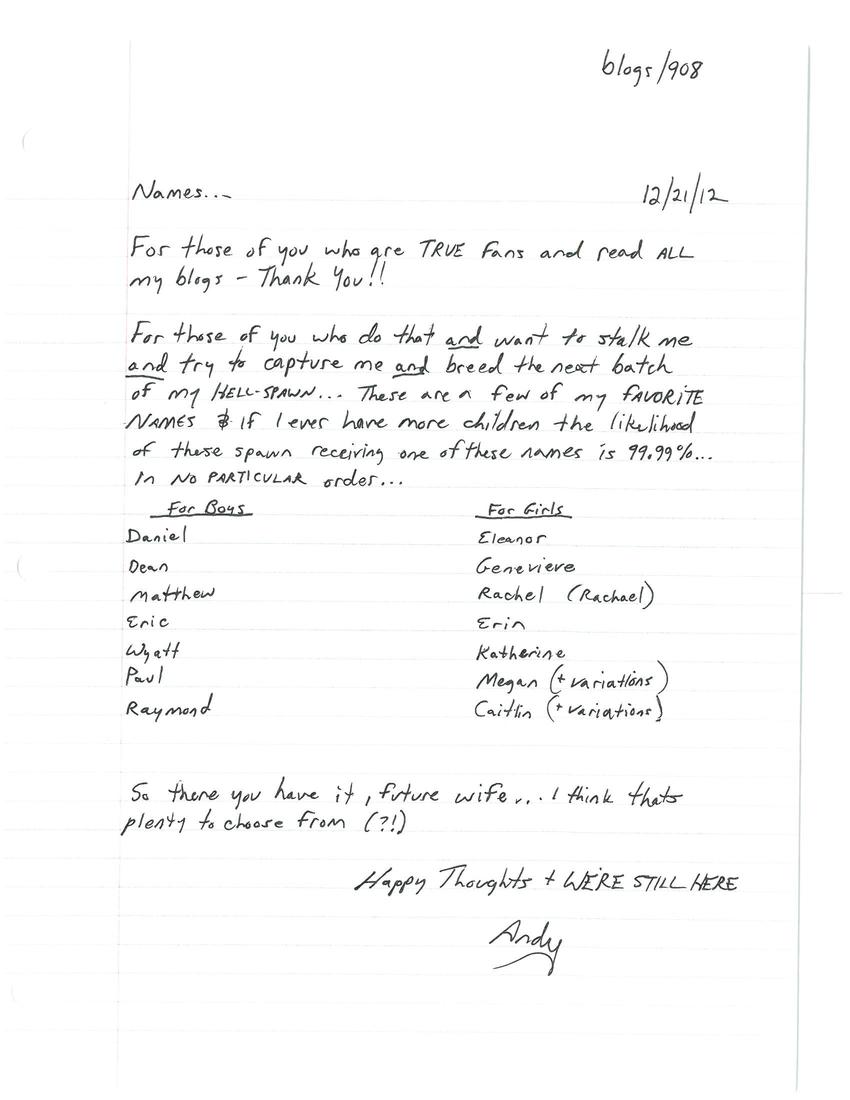 blogs/908
Names... 12/21/12
For those of you who are TRUE fans and read ALL
my blogs - Thank You!!
For those of you who do that and want to stalk me
and try to capture me and breed the next batch
of my HELL-SPAWN... These are a few of my FAVORITE
NAMES & if I ever have more children the likelihood
of these spawn receiving one of these names is 99.99%...
In NO PARTICULAR order...
For Boys For Girls
Daniel Eleanor
Dean Genevieve
Matthew Rachel (Rachael)
Eric Erin
Wyatt Katherine
Paul Megan (+ variations)
Raymond Caitlin (+ variations)
So there you have it, future wife... I think thats
plenty to choose from (?!)
Happy Thoughts + WE'RE STILL HERE
Andy